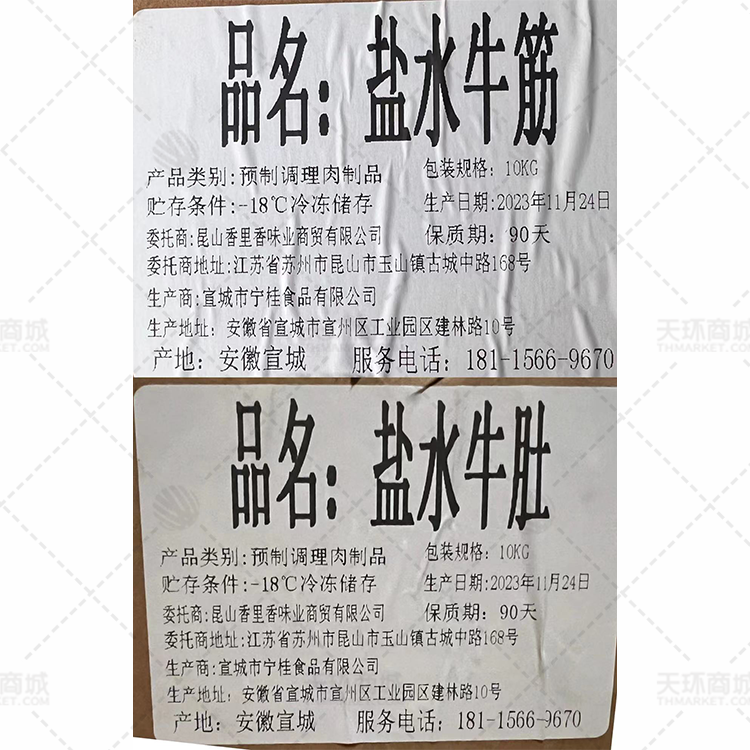 品名：盐水牛筋
产品类别:预制调理肉制品 包装规格：10KG
贮存条件:-18℃冷冻储存 生产日期:2023年11月24日
委托商:昆山香里香味业商贸有限公司 保质期：90天
委托商地址:江苏省苏州市昆山市玉山镇古城中路168号
生产商:宣城市宁桂食品有限公司
生产地址：安徽省宣城市宣州区工业园区建林路10号
产地：安徽宣城 服务电话：181-1566-9670
品名：盐水牛肚
产品类别:预制调理肉制品 包装规格：10KG
贮存条件:-18℃冷冻储存 生产日期:2023年11月24日
委托商:昆山香里香味业商贸有限公司 保质期：90天
委托商地址:江苏省苏州市昆山市玉山镇古城中路168号
生产商:宣城市宁桂食品有限公司
生产地址：安徽省宣城市宣州区工业园区建林路10号
产地：安徽宣城 服务电话：181-1566-9670
天环商城
THMARKET.COM